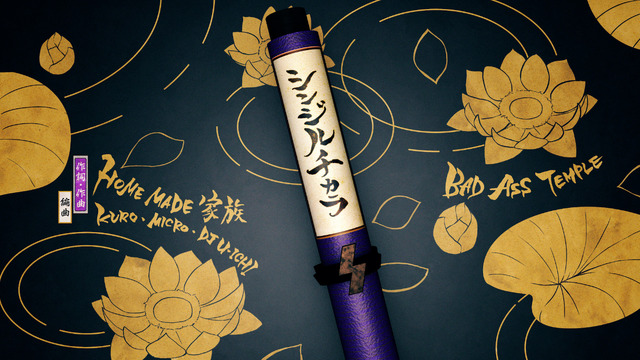 シンジルチカラ
BAD ASS TEMPLE
作詞・作曲
編曲
HOME MADE 家族
KURO・MICRO・DJ U-ICHI